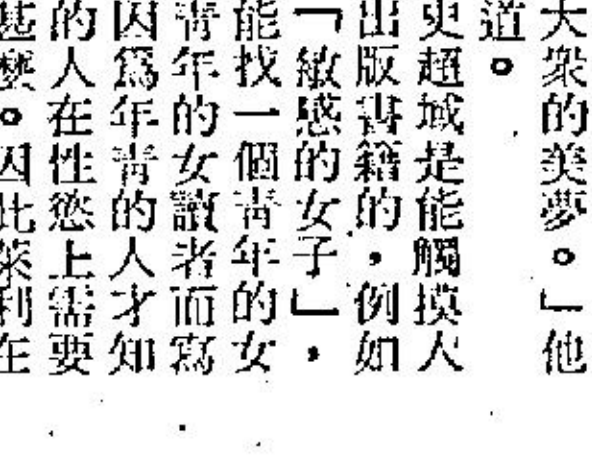 大衆的美夢。」他
道。
史超域是能觸摸人
出版書籍的，例如
「敏感的女子」，
能找一個青年的女
青年的女讀者而寫
因爲年青的人才知
的人在性慾上需要
甚麼。因此萊利在